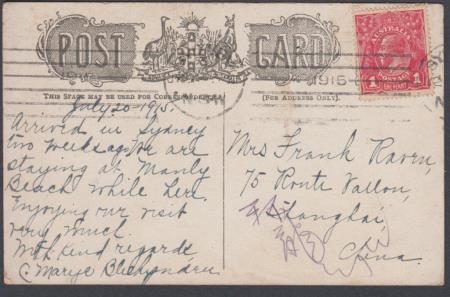 POST CARD
THIS SPACE MAY BE USED FOR CORRESPONDENCE.
(FOR ADDRESS ONLY).
AUSTRALIA
1 1
ONE PENNY
1915
N.S.W
July 20 1915.
Arrived in Sydney
two weeks ago we are
staying at Manly
Beach while here.
Enjoying our visit
very much.
With kind regards
C. Marye
Mrs Frank Raven,
75 Route Vallon,
Shanghai,
China.